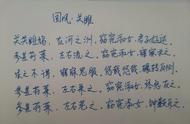 国风·关雎
关关雎鸠，在河之洲，窈窕淑女，君子好逑。
参差荇菜，左右流之，窈窕淑女，寤寐求之。
求之不得，寤寐思服，悠哉悠哉，辗转反侧。
参差荇菜，左右采之，窈窕淑女，琴瑟友之。
参差荇菜，左右芼之，窈窕淑女，钟鼓乐之。